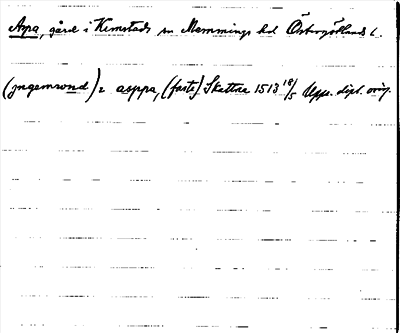 Aspa, gård i Kimstads sn Memmings hd Östergötlands l.
(jngemwnd) i asppa, (faste) Skettra 1513 18/5 Upps. dipl. orig.